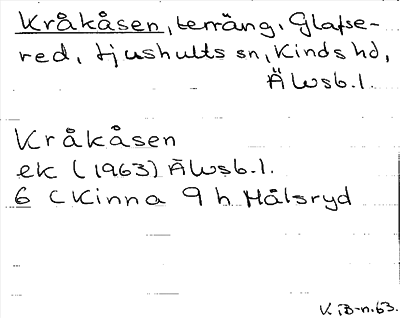 Kråkåsen, terräng, Glafse-
red, Ljushults sn, Kinds hd,
Älvsb. l.
Kråkåsen
ek (1963) Älvsb. l.
6 C Kinna 9 h Målsryd